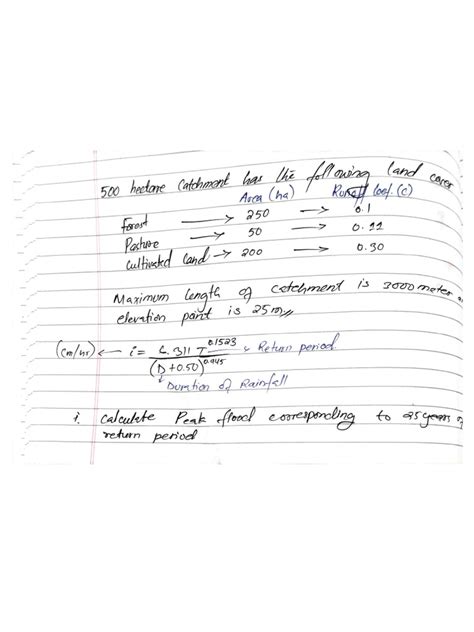 500 hectare Catchment has the following land cover
Area (ha) Runoff Coef. (C)
Forest → 250 → 0.1
Pasture → 50 → 0.11
Cultivated land → 200 → 0.30
Maximum length of catchment is 3000 meter
elevation point is 25m
(cm/hr) ← i = 6.311 T^0.1523 → Return period
(D + 0.50)^0.945
↓ Duration of Rainfall
i. Calculate Peak flood corresponding to 25 years
return period